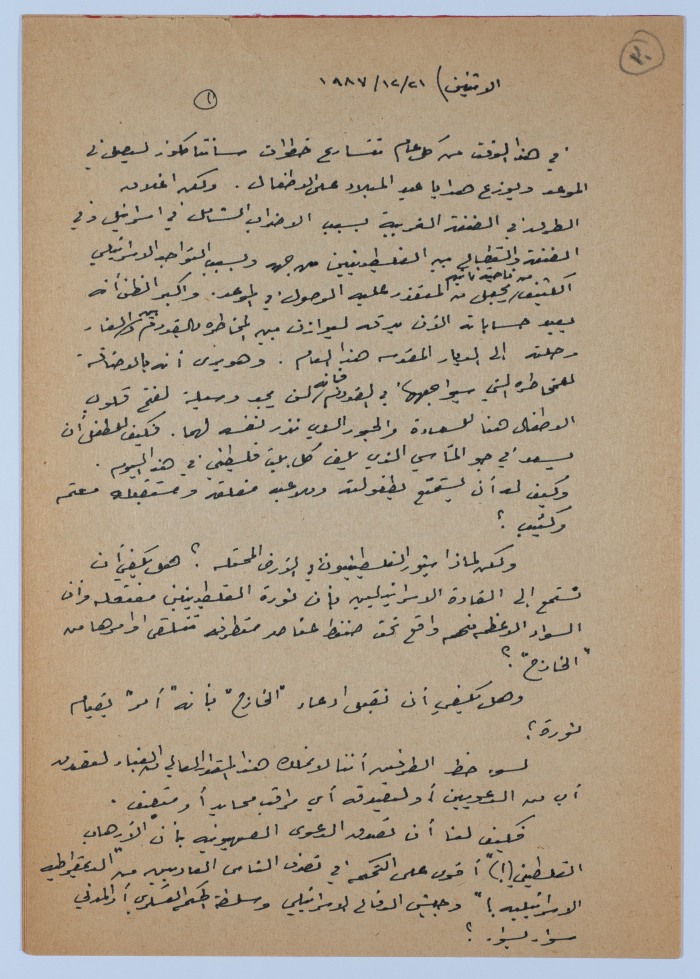 ٣٠
الاثنين) ١٩٨٧/١٢/٢١
١
في هذا الوقت من كل عام تتسارع خطوات سانتا كلوز ليصل في
الموعد ويوزع هدايا عيد الميلاد على الاطفال . ولكن اغلاق
الطرق في الضفة الغربية بسبب الاضراب الشامل في اسرائيل وفي
الضفة والقطاع من الفلسطينيين من جهة وبسبب التواجد الاسرائيلي
الكثيف من ناحية ثانية يجعل من المتعذر عليه الوصول في الموعد . واكبر الظن أنه
يعيد حسابات الآن ليوازن بين المخاطرة بالقدوم الغاء
رحلته إلى الديار المقدسه هذا العام . وهو يرى أنه بالاضافة
للمخاطرة التي سيواجهها في القدوم فإنه لن يجد وسيلة لفتح قلوب
الاطفال هنا للسعادة والحبور الذي نذر نفسه لهما . فكيف للطفل أن
يسعد في جو المآسي الذي يلف كل بيت فلسطيني في هذا اليوم .
وكيف له أن يستمتع بطفولته وملاعبه مغلقة ومستقبله معتم
وكئيب ؟
ولكن لماذا يثور الفلسطينيون في الارض المحتله ؟ هل يكفي أن
نستمع إلى القادة الاسرائيليين بأن ثورة الفلسطينيين مفتعله وأن
السواد الاعظم منهم واقع تحت ضغط عناصر متطرفة تتلقى اوامرها من
"الخارج" ؟
وهل يكفي أن نقبل ادعاء "الخارج" بأنه "أمر" بقيام
ثورة ؟
لسوء حظ الطرفين أننا لا نملك هذا المقدار العالي من الغباء لنصدق
أي من الدعويين أو ليصدقه أي مراقب محايد أو منصف .
فكيف لنا أن نصدق الدعوى الصهيونيه بأن "الارهاب
الفلسطيني (!)" أقوى على التحكم في تصرف الناس العاديين من "الديمقراطيه
الاسرائيليه !" وجيش الدفاع الاسرائيلي وسلطة الحكم العسكري أو المدني
سواء بسواء ؟